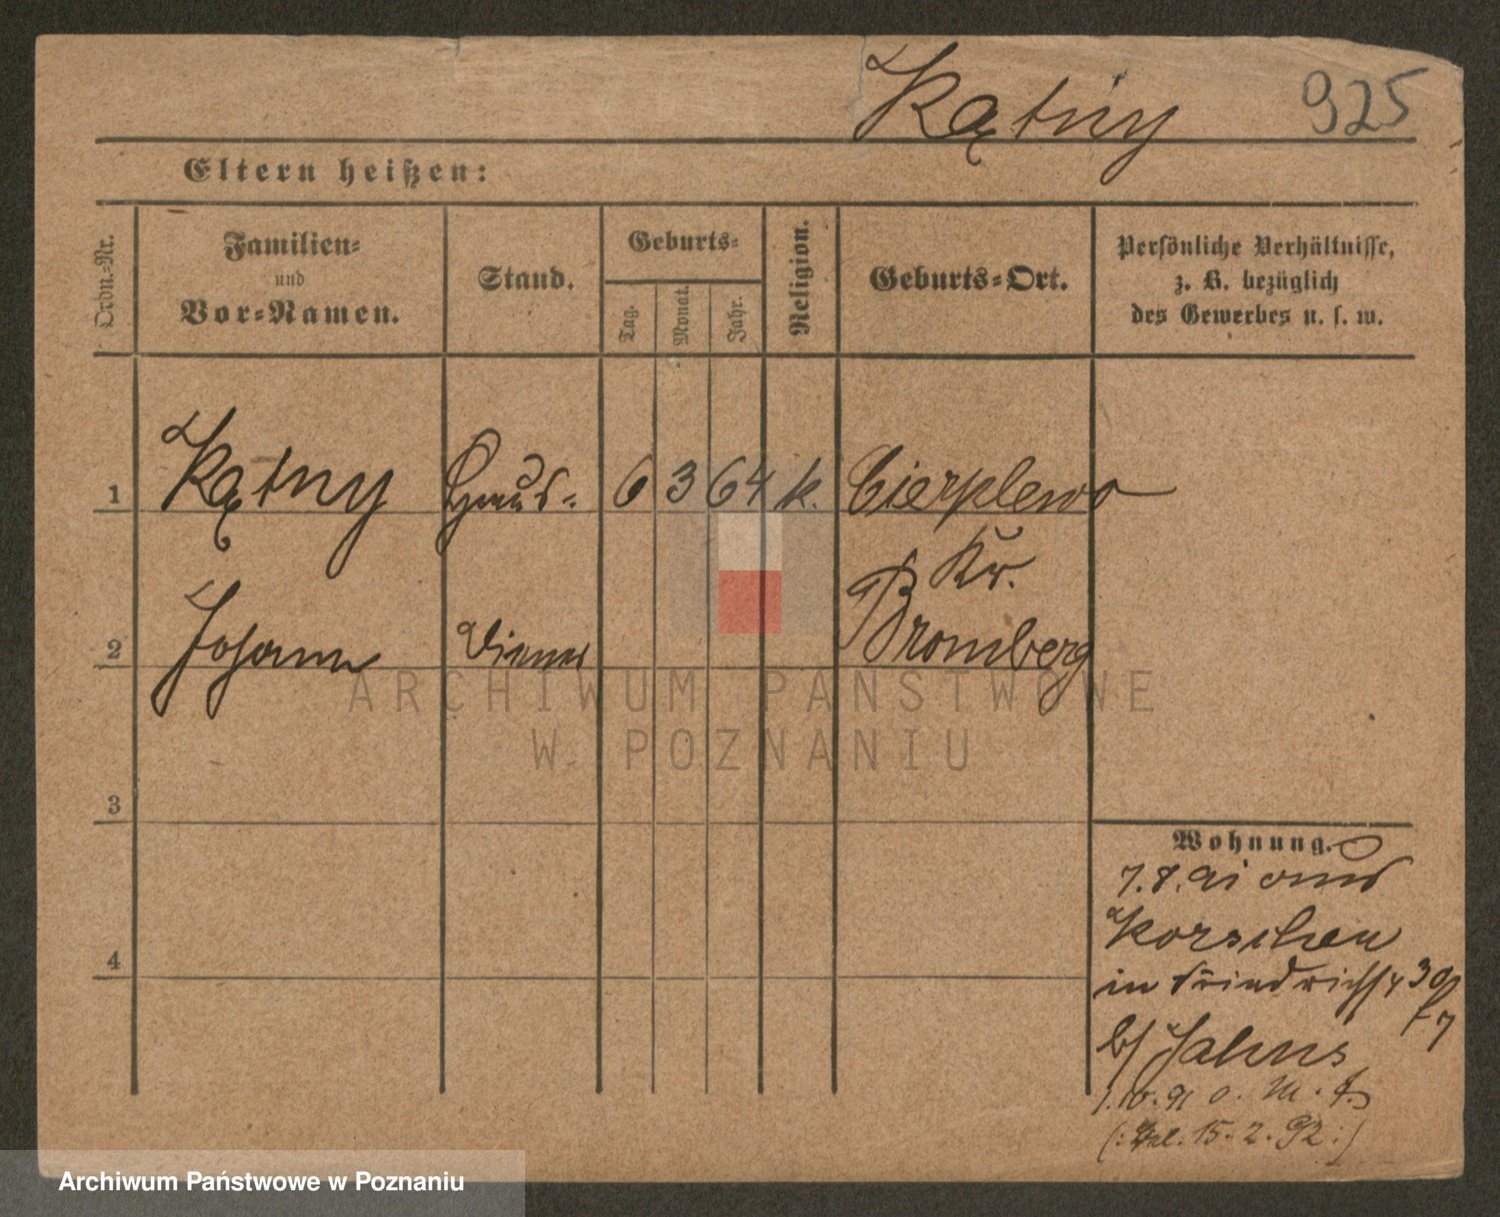 Kątny 925
Eltern heißen:
Ordn.-Nr.
Familien-
und
Vor-Namen.
Stand.
Geburts-
Tag.
Monat.
Jahr.
Religion.
Geburts-Ort.
Persönliche Verhältnisse,
z. B. bezüglich
des Gewerbes u. s. w.
1 Kątny Haus- 6 3 64 k. Cierplewo
Kr.
2 Johann Diener Bromberg
ARCHIWUM PAŃSTWOWE
W POZNANIU
3
Wohnung.
7.8.91 aus
Korschen
4
in Friedrichstr 30
b/ Jahns
1.10.91 o. M. f.
(: 15.2.92 :)
Archiwum Państwowe w Poznaniu